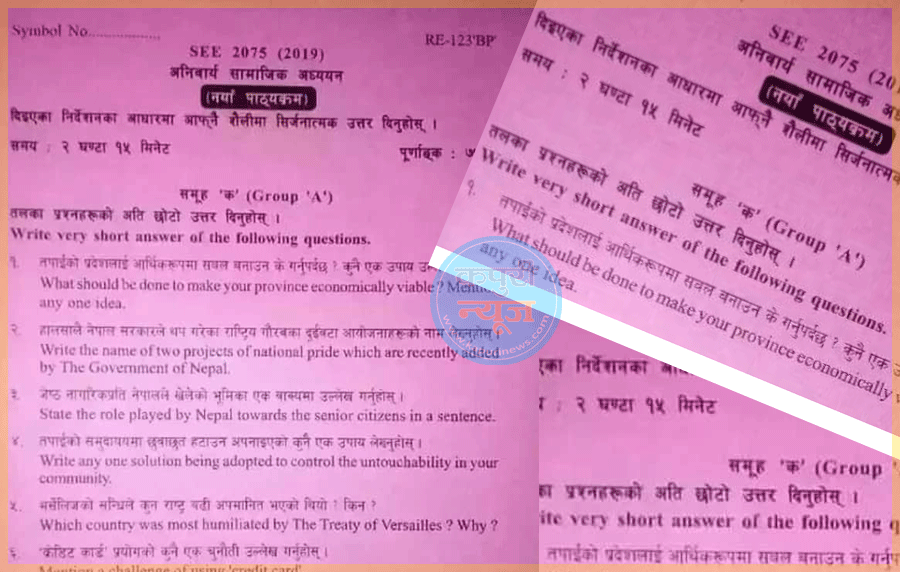 Symbol No..................
RE-123'BP'
SEE 2075 (2019)
अनिवार्य सामाजिक अध्ययन
(नयाँ पाठ्यक्रम)
दिइएका निर्देशनका आधारमा आफ्नै शैलीमा सिर्जनात्मक उत्तर दिनुहोस् ।
समय : २ घण्टा १५ मिनेट
पूर्णाङ्क :
समूह 'क' (Group 'A')
तलका प्रश्नहरूको अति छोटो उत्तर दिनुहोस् ।
Write very short answer of the following questions.
१. तपाईंको प्रदेशलाई आर्थिकरूपमा सबल बनाउन के गर्नुपर्दछ ? कुनै एक उपाय
What should be done to make your province economically viable ? Mention
any one idea.
२. हालसालै नेपाल सरकारले थप गरेका राष्ट्रिय गौरवका दुईवटा आयोजनाहरूको नाम लेख्नुहोस् ।
Write the name of two projects of national pride which are recently added
by The Government of Nepal.
३. जेष्ठ नागरिकप्रति नेपालले खेलेको भूमिका एक वाक्यमा उल्लेख गर्नुहोस् ।
State the role played by Nepal towards the senior citizens in a sentence.
४. तपाईंको समुदायमा छुवाछुत हटाउन अपनाइएको कुनै एक उपाय लेख्नुहोस् ।
Write any one solution being adopted to control the untouchability in your
community.
५. भर्सेलिजको सन्धिले कुन राष्ट्र बढी अपमानित भएको थियो ? किन ?
Which country was most humiliated by The Treaty of Versailles ? Why ?
६. 'क्रेडिट कार्ड' प्रयोगको कुनै एक चुनौती उल्लेख गर्नुहोस् ।
Mention a challenge of using 'credit card'
कपुरी
न्यूज
SEE 2075 (201
अनिवार्य सामाजिक
(नयाँ पाठ्यक्रम)
दिइएका निर्देशनका आधारमा आफ्नै शैलीमा सिर्जनात्मक
समय : २ घण्टा १५ मिनेट
समूह 'क' (Group 'A')
तलका प्रश्नहरूको अति छोटो उत्तर दिनुहोस् ।
Write very short answer of the following questions.
१. तपाईंको प्रदेशलाई आर्थिकरूपमा सबल बनाउन के गर्नुपर्दछ ? कुनै एक
What should be done to make your province economically
any one idea.
निर्देशनका
: २ घण्टा १५ मिनेट
समूह 'क' (Group
प्रश्नहरूको अति छोटो उत्तर दिनुहोस् ।
ite very short answer of the following
तपाईंको प्रदेशलाई आर्थिकरूपमा सबल बनाउन के